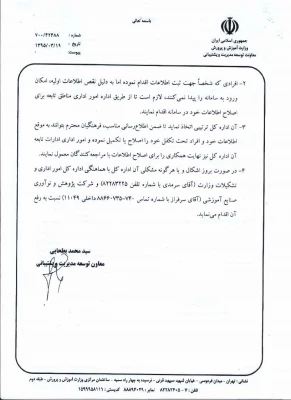 باسمه تعالی
جمهوری اسلامی ایران
وزارت آموزش و پرورش
معاونت توسعه مدیریت و پشتیبانی
شماره :
تاریخ : ۱۳۹۵/۰۳/۱۹
پیوست :
۲- افرادی که شخصاً جهت ثبت اطلاعات اقدام نموده اما به دلیل نقص اطلاعات اولیه، امکان
ورود به سامانه را پیدا نمی‌کنند، لازم است تا از طریق اداره امور اداری مناطق تابعه برای
اصلاح اطلاعات خود در سامانه اقدام نمایند.
۳- آن اداره کل ترتیبی اتخاذ نماید تا ضمن اطلاع‌رسانی مناسب، فرهنگیان محترم بتوانند به موقع
اطلاعات خود و افراد تحت تکفل خود را اصلاح یا تکمیل نموده و امور اداری ادارات تابعه
آن اداره کل نیز نهایت همکاری را برای اصلاح اطلاعات با مراجعه‌کنندگان معمول نمایند.
۴- در صورت بروز اشکال و یا هرگونه مشکلی آن اداره کل با هماهنگی اداره کل امور اداری و
تشکیلات وزارت (آقای سرمدی با شماره تلفن ۸۲۲۸۳۲۲۵) و شرکت پژوهش و نوآوری
صنایع آموزشی (آقای سرفراز با شماره تماس ۷۴۰-۸۸۶۶۰۷۳۵ داخلی ۱۱۰۴۹) نسبت به رفع
آن اقدام می‌نماید.
سید محمد بطحایی
معاون توسعه مدیریت و پشتیبانی
نشانی: تهران - میدان فردوسی - خیابان شهید سپهبد قرنی - نرسیده به چهار راه سمیه - ساختمان مرکزی وزارت آموزش و پرورش - طبقه دوم